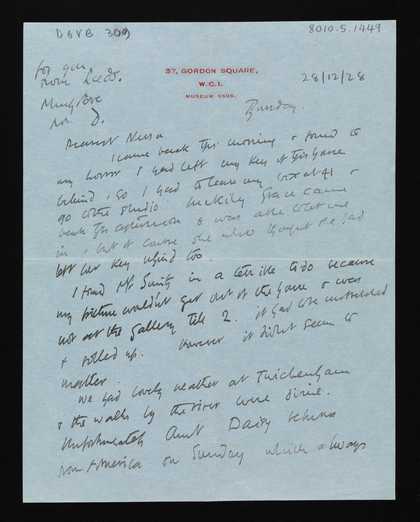 DGVB 309
8010.5.1449
37, GORDON SQUARE,
W.C.1.
MUSEUM
28/12/28
Dearest Nessa
I came back this morning & found to
my horror I had left my key of this house
behind, so I had to leave my box at 41 &
go to the studio. Luckily Grace came
back this afternoon & was able to let me
in, but of course she also thought she had
left her key behind too.
I found Mr in a terrible to do because
my picture wouldn't get out of the house & was
not at the gallery till 2. it had to be
& rolled up. However it didn't seem to
matter.
We had lovely weather at Twickenham
& the walks by the river were divine.
Unfortunately Aunt Daisy returns
from America on Sunday which always